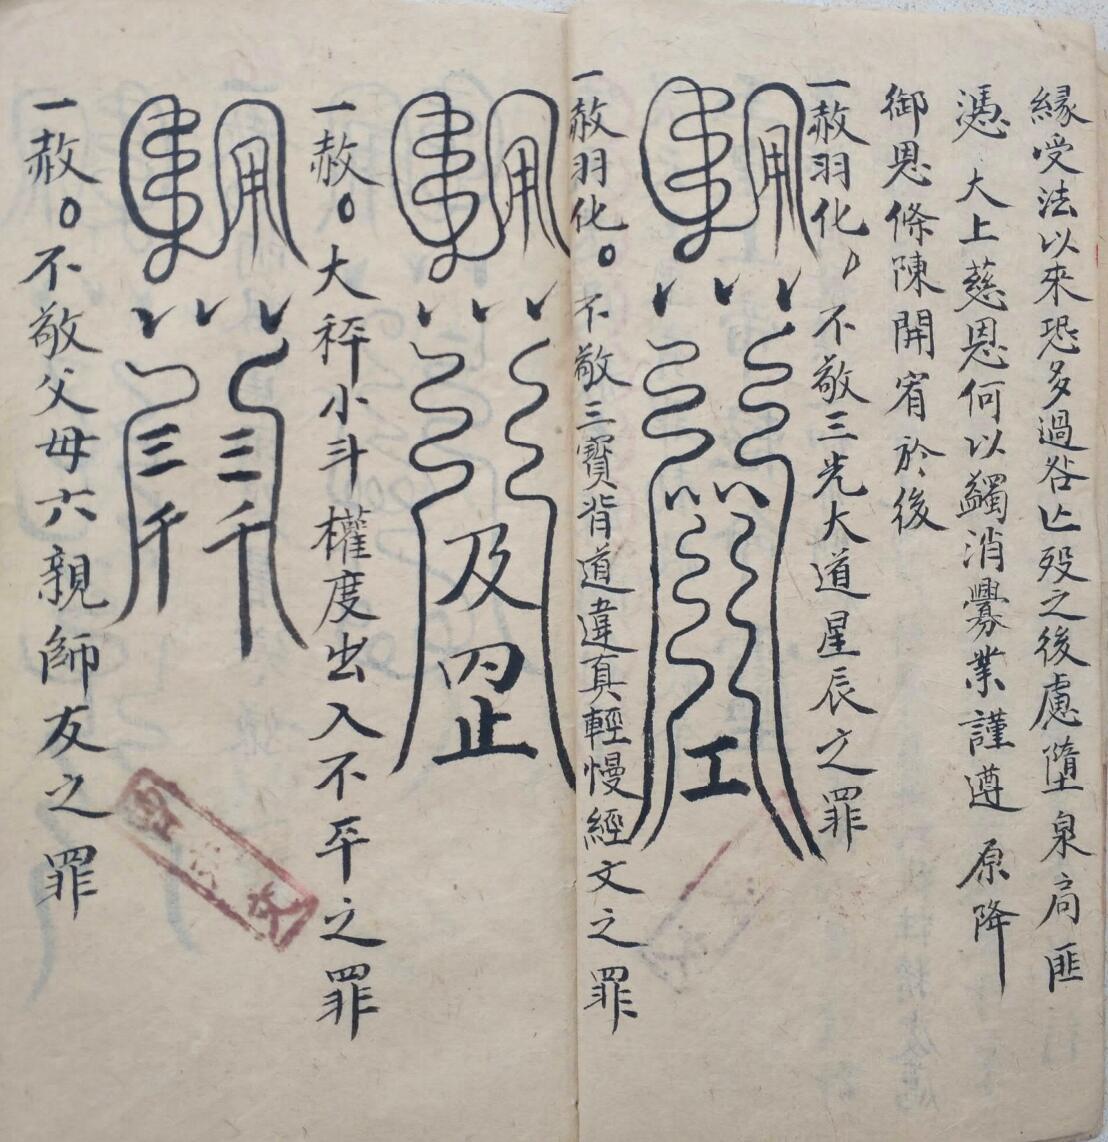 緣受法以來恐多過咎亡歿之後慮墮泉扃匪
憑 大上慈恩何以蠲消釁業謹遵 原降
御恩條陳開宥於後
一赦羽化。不敬三光大道星辰之罪
工
一赦羽化。不敬三寶背道違真輕慢經文之罪
及
止
一赦。大秤小斗權度出入不平之罪
三千
三千
一赦。不敬父母六親師友之罪